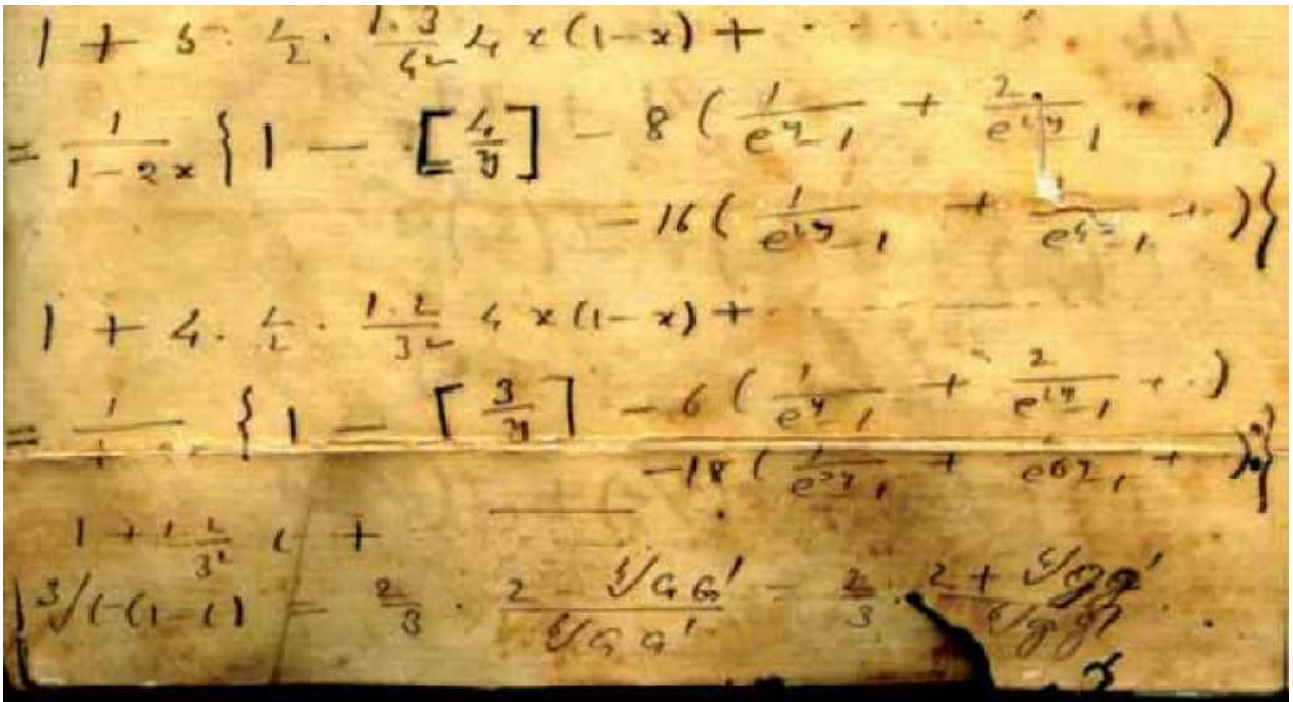 1 + 5 · 1/2 · 1·3/4² 4x(1-x) + · · · · ·
= 1/(1-2x) { 1 - [4/y] - 8 ( 1/(e^y - 1) + 2/(e^{2y} - 1) + · · )
- 16 ( 1/(e^{2y} - 1) + /(e^{4y} - 1) + · · ) }
1 + 4 · 1/2 · 1·2/3² 4x(1-x) + · · ·
= 1/ { 1 - [3/y] - 6 ( 1/(e^y - 1) + 2/(e^{2y} - 1) + · · )
- 18 ( 1/(e^{3y} - 1) + /(e^{6y} - 1) + ) }
1 + 1·2/3² +
∛ = 2/3 · (2 - GG')/(GG') = 2/3 · (2 + gg')/(gg') .